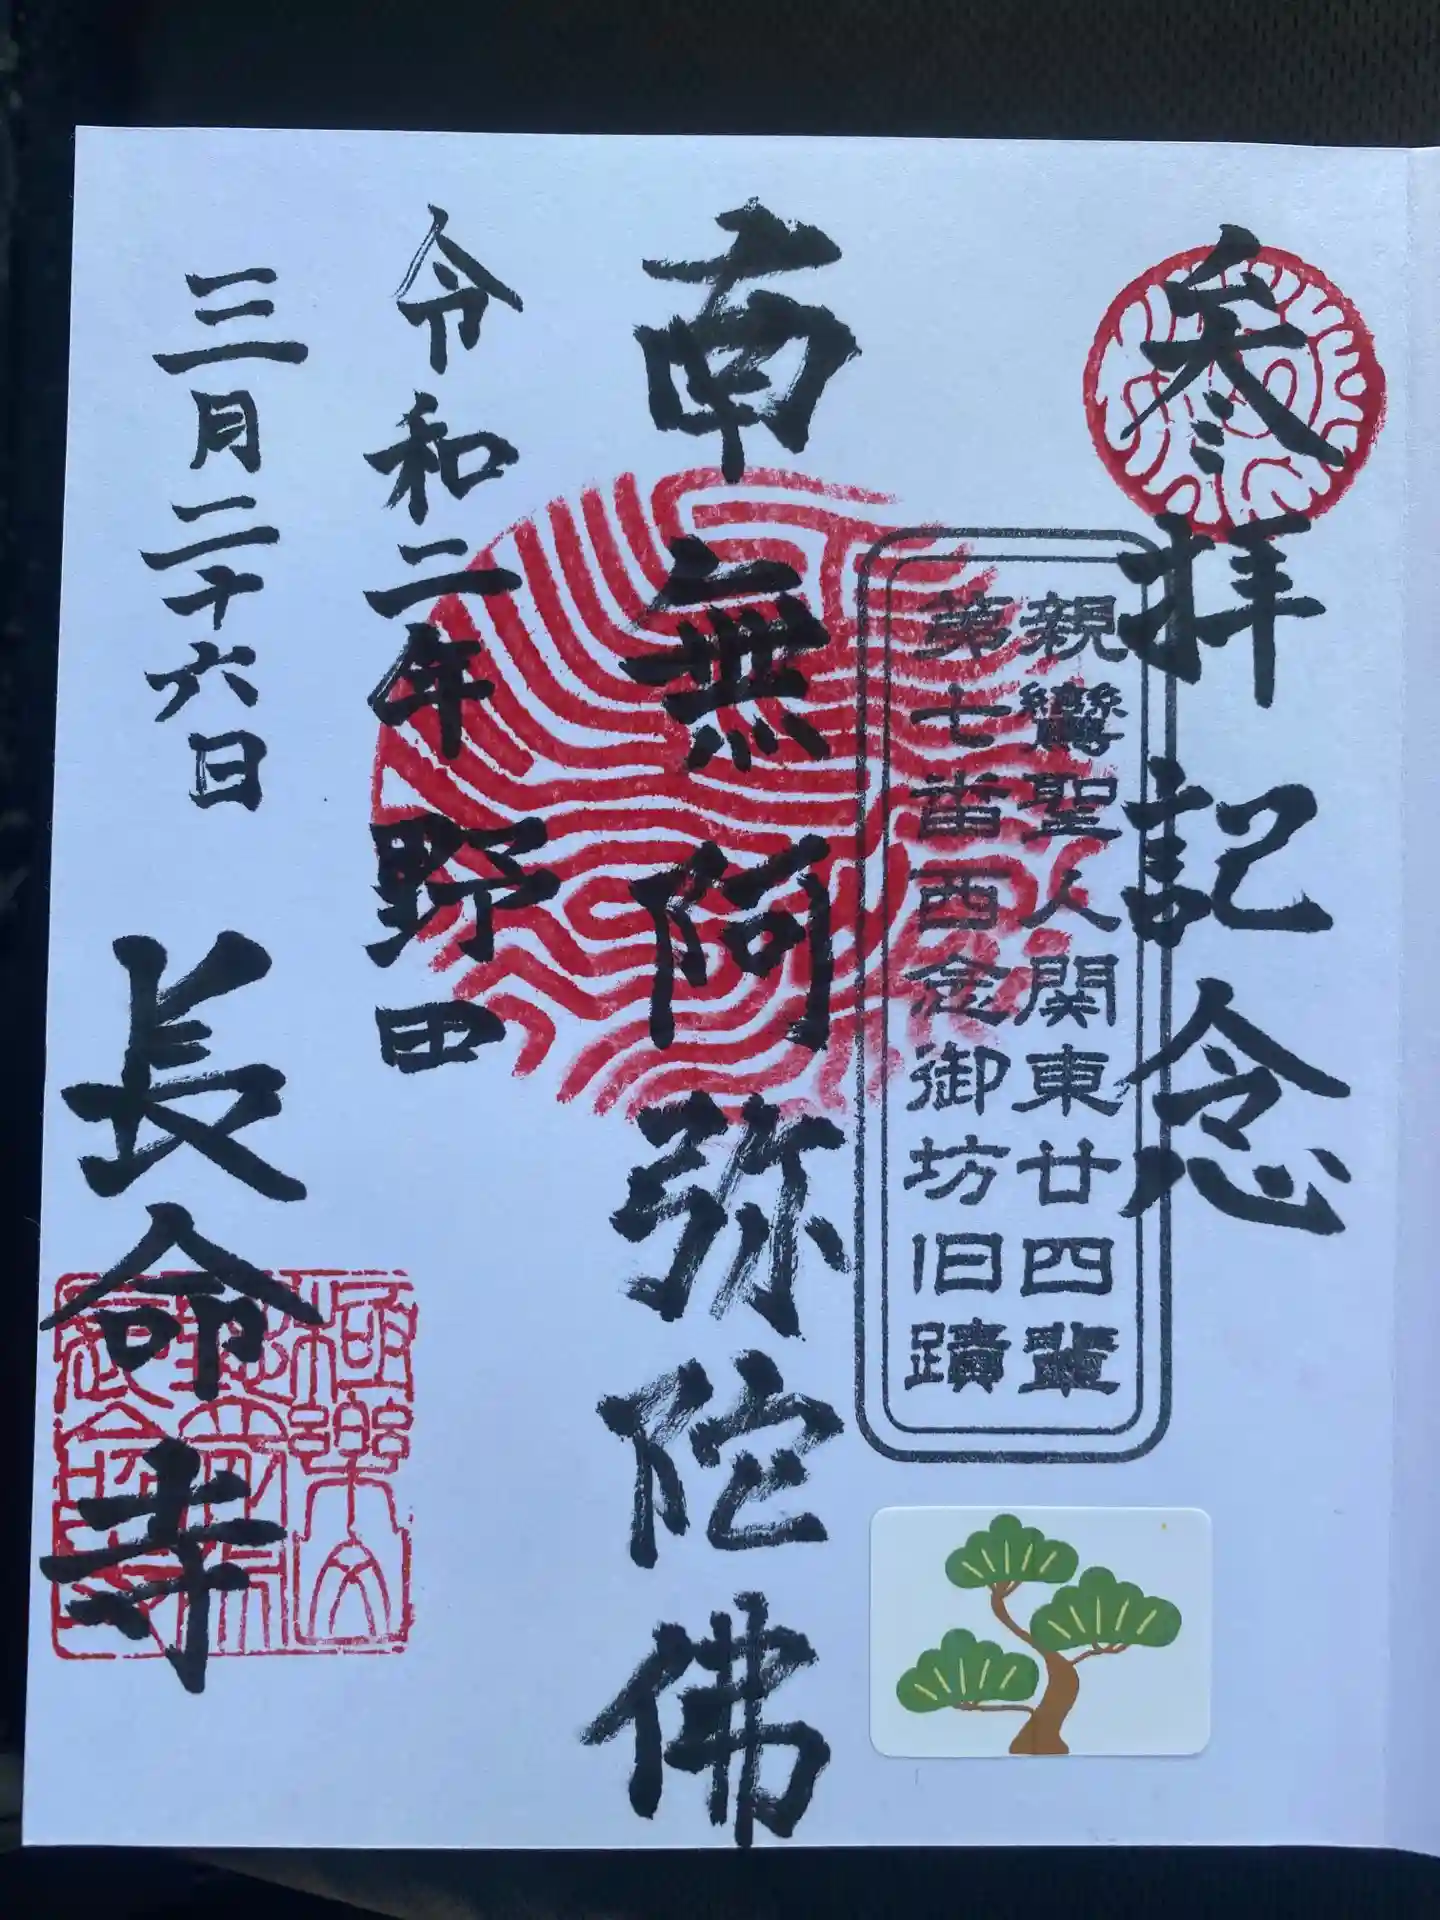 参拝記念
親鸞聖人関東廿四輩
第七番西念御坊旧蹟
南無阿弥陀佛
令和二年 野田
三月二十六日 長命寺